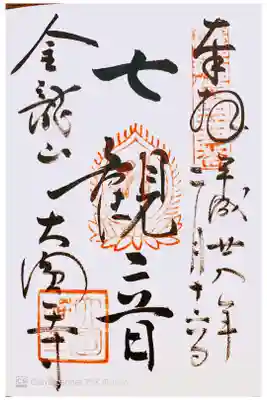 奉拝 平成廿八年
月十六日
七観音
金龍山 大圓寺